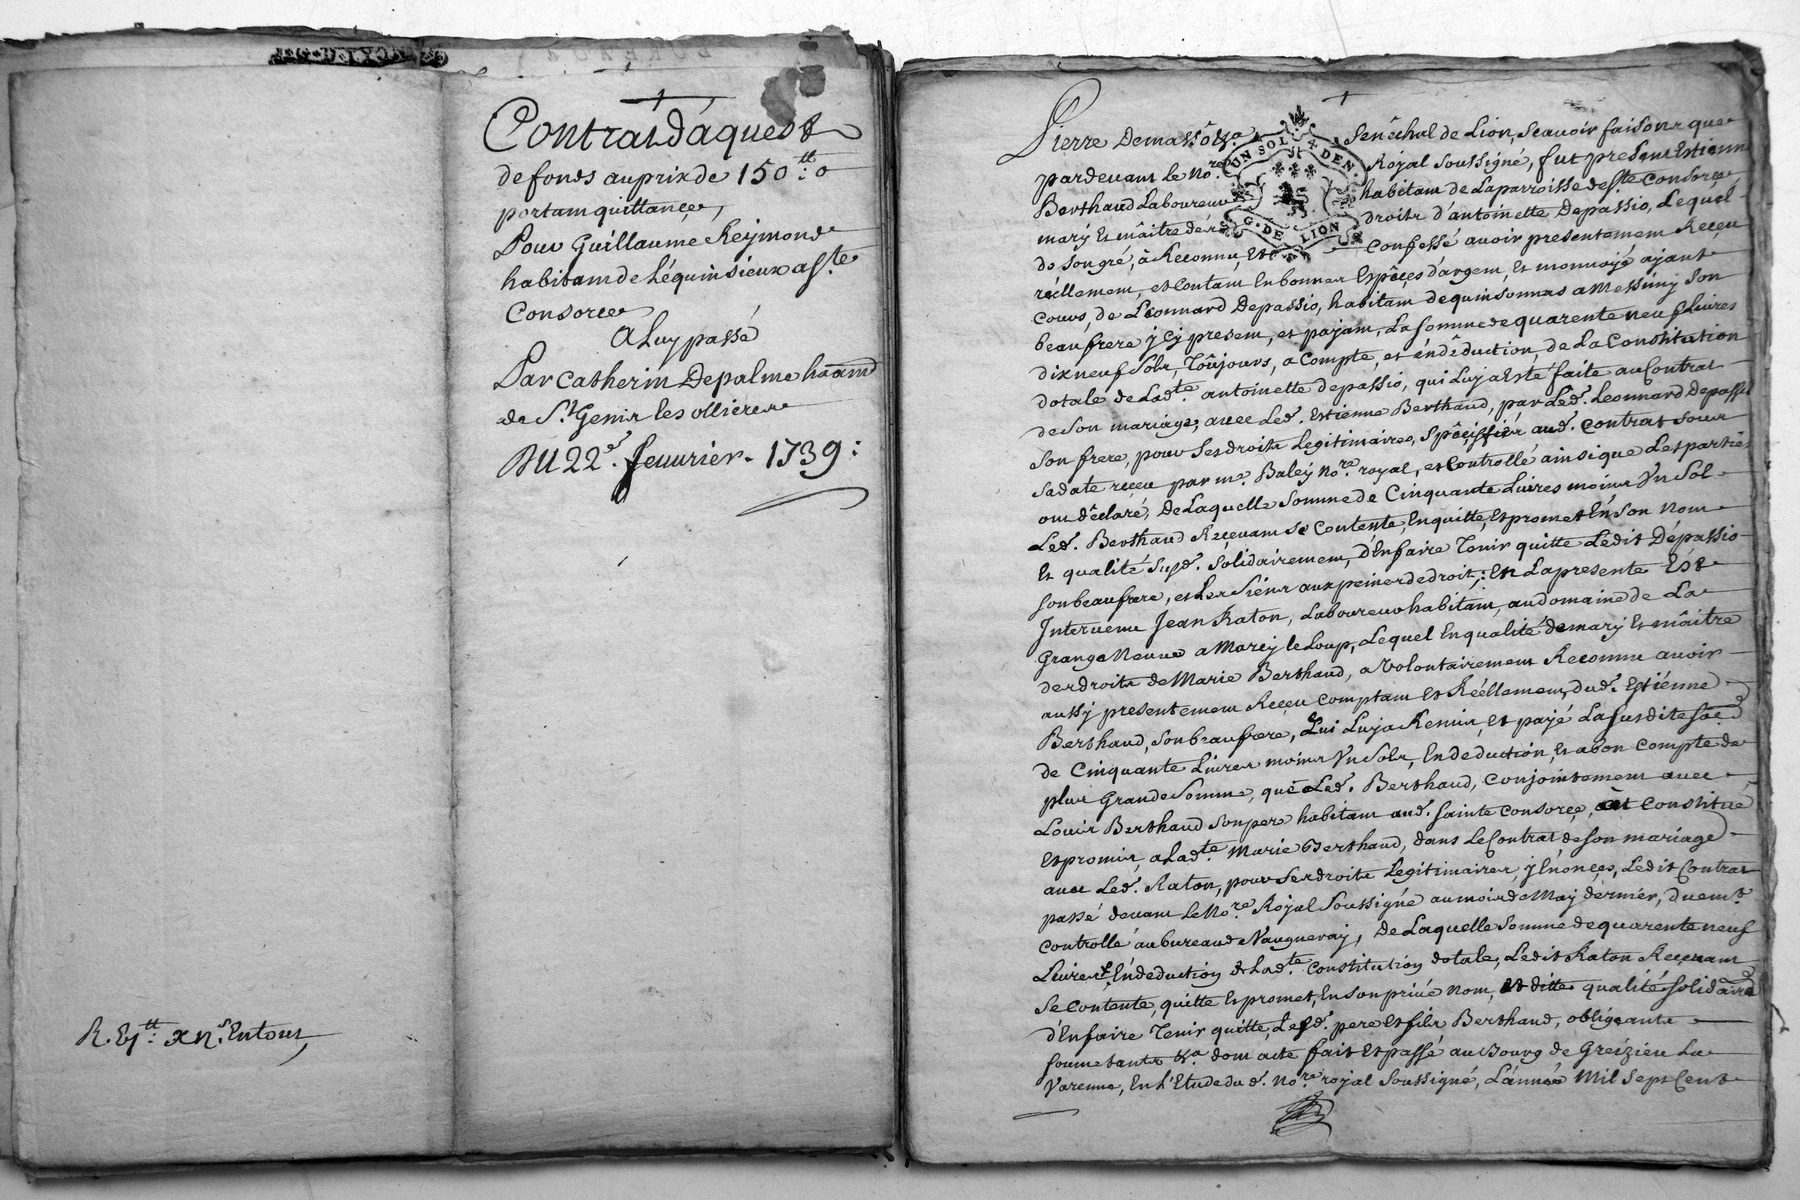 Contrat d'aquest
de fonds au prix de 150 tt: o
portant quittance,
Pour Guillaume Reymond
habitant de Léquinsieux a Ste
Consorce
A Luy passé
Par Catherin Depalme haânt
de St. Genis les ollieres
DU 22e. feuurier - 1739:
en tout,
Pierre Demassô &a. Senêchal de Lion, Scauoir faisons que
pardevant le Nore. Royal Soussigné, fut present Estienne
Berthaud Laboureur habitant de La parroisse de Ste Consorce
mary Et mâitre des droits d'antoinette Depassio, Lequel
de son gré, à Reconnu, Et Confessé auoir presentement Receu
réellement, et Contant En bonnes Espêces d'argent, Et monnoye ajant
Cours, de Léonnard Depassio, habitant de quinsonnas a Messimy Son
beaufrere jcy present, et pajant, La somme de quarente neuf Liures
dix neuf Sols, Toûjours, a Compte, et en dêduction, de La Constitution
dotale de Ladte. antoinette depassio, qui Luy a Esté faite au Contrat
de Son mariage, auec Led. Estienne Berthaud, par Led. Leonnard Depassio
Son frere, pour Ses droits Legitimaires, Spêcifiés aud. Contrat sous
sa date reçeu par me. Baley Nore. royal, et Controllé ainsi que Les parties
ont dêclaré, De Laquelle Somme de Cinquante Liures moins Un Sol
Led. Berthaud Reçeuant Se Contente, En quitte, Et promet En Son Nom
Et qualité Susd. Solidairement, d'En faire Tenir quitte Ledit Dépassio
son beaufrere, et Les Siens aux peines de droit,: En La presente Est
Interuenu Jean Raton, Laboureur habitant, au domaine de La
Grange Neuue a Marcy le Loup, Lequel En qualité de mary Et mâitre
des droits de Marie Berthaud, a Volontairement Reconnu auoir
aussy presentement Reçeu Comptant Et Réellement, dud. Estiénne
Berthaud, Son beaufrere, qui Luy a Remis, Et payé La susdite Soê.
de Cinquante Liures moins Un Sols, En deduction, Et a bon Compte de
plus Grande Somme, que Led. Berthaud, Conjointement auec
Louis Berthaud Son pere habitant aud. Sainte Consorce, ont Constitué
Et promis, a Ladte. Marie Berthaud, dans Le Contrat de Son mariage
auec Led. Raton, pour Ses droits Legitimaires, y Enonçes, Ledit Contrat
passé devant Le Nore. Royal Soussigné au mois de May dérniér, duemt.
Controllé au bureau de Vaugneray, De Laquelle Somme de quarente neuf
Liures En deduction de Ladte. Constitution dotale, Ledit Raton Reçeuant
Se Contente, quitte Et promet, En Son priué Nom, Et ditte qualité Solidaire
d'En faire Tenir quitte, Lesd. pere Et fils Berthaud, obligeants
soumetants &a. dont acte fait Et passé au Bourg de Greizieu La
Varenne, En L'Etude dud. Nore. royal Soussigné, L'année Mil Sept Cent
UN SOL. 4 DEN.
G. DE LION